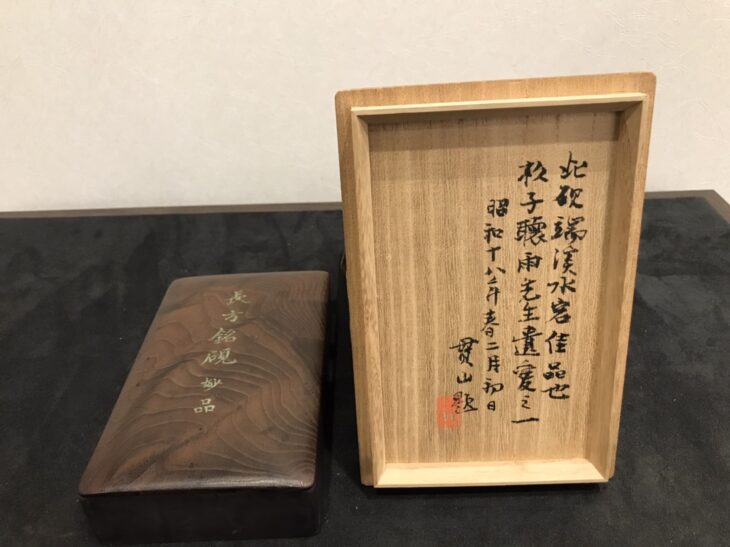 長方銘硯 妙品
此硯端溪水岩佳品也
杉子聽雨先生遺愛之一
昭和十八年春二月初日
貫山題